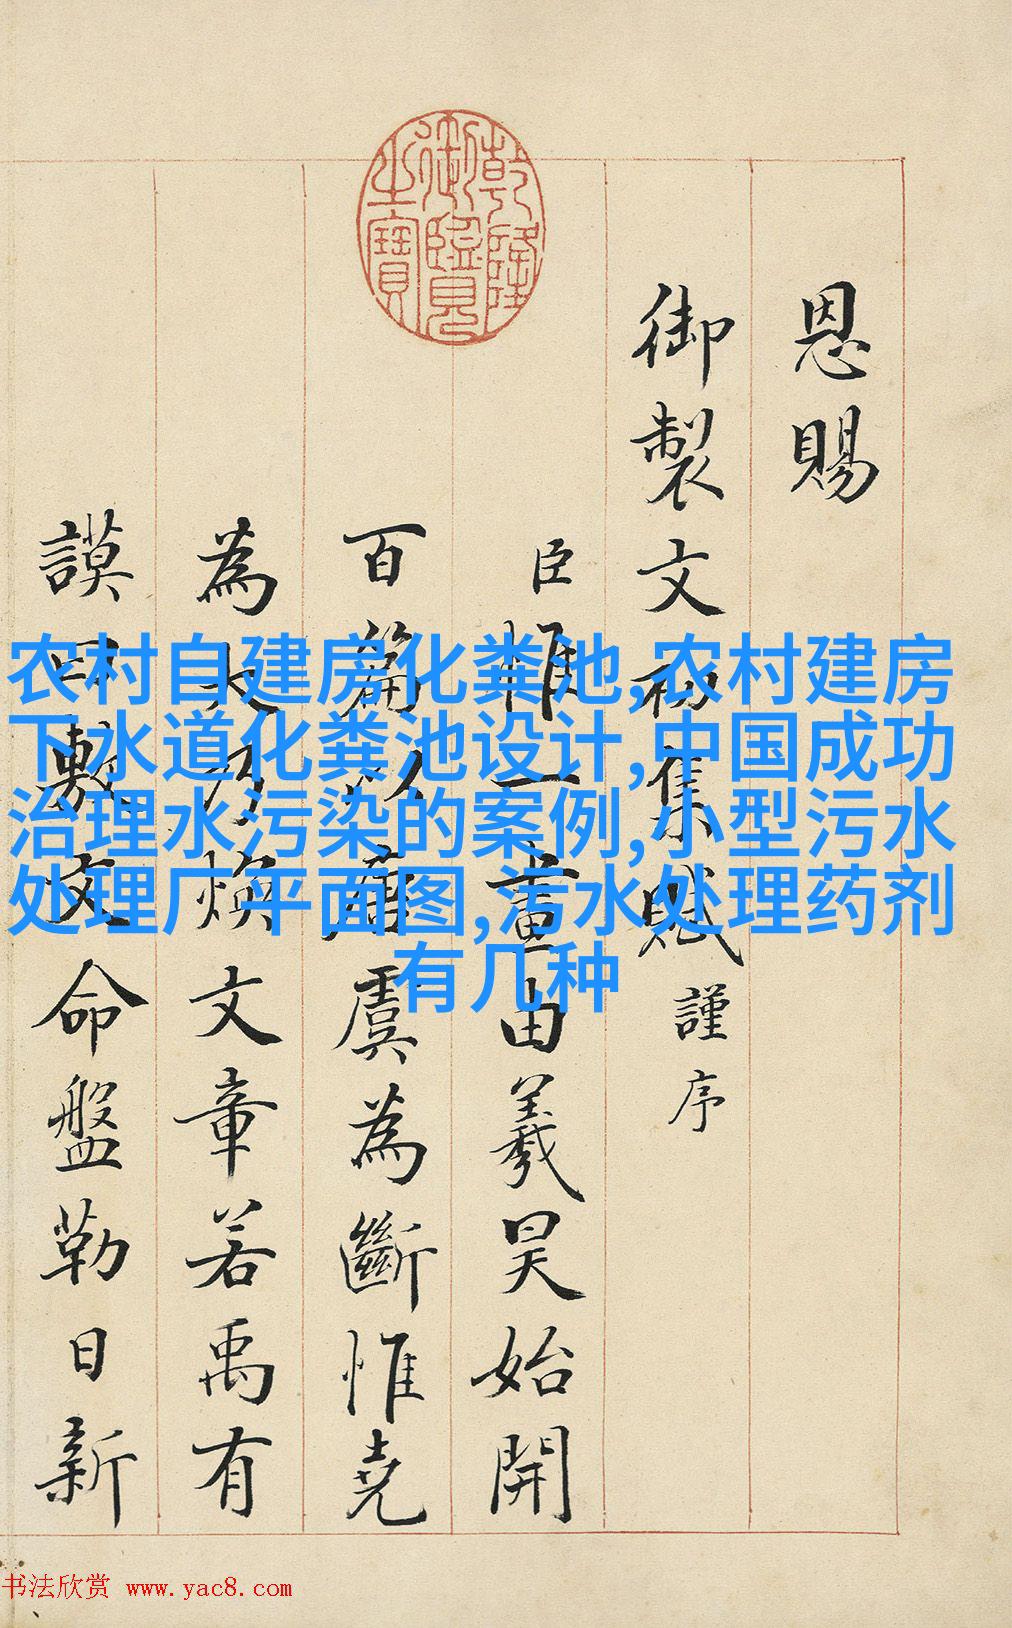 恩賜
御製文初集賦謹序
臣惟一畫由羲昊始開
百篇以前虞為斷惟堯
為大乃煥文章若禹有
謨曰敷文命盤勒日新
乾隆御覽之寶
农村自建房化粪池,农村建房
下水道化粪池设计,中国成功
治理水污染的案例,小型污水
处理厂平面图,污水处理药剂
有几种
书法欣赏 www.yac8.com